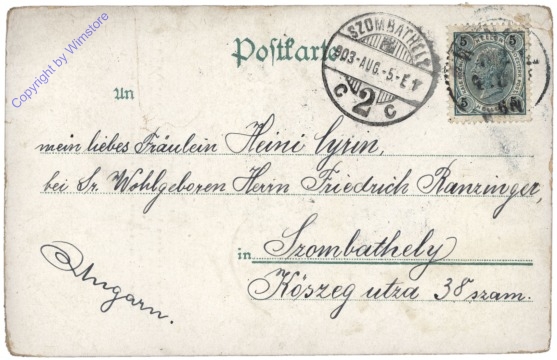 Copyright by Wimstore
Postkarte
SZOMBATHELY
903-AUG.-5-E1
C 2 C
5 5
An
mein liebes Fräulein Heini Cyrin,
bei Sr. Wohlgeboren Herrn Friedrich Ranzinger,
in Szombathely
Kőszeg utza 38 szam.
Ungarn.